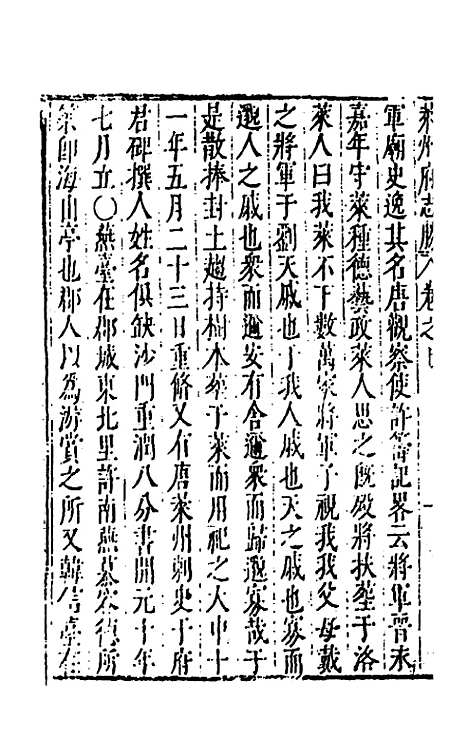 萊州府志勝八卷之
軍廟史逸其名唐觀察使許籌記畧云將軍晉永
嘉年守萊種德藝政萊人思之既歿將扶葬于洛
萊人曰我萊不下數萬家將軍子視我我父母戴
之將軍于劉天戚也于我人戚也天之戚也寡而
邈人之戚也衆而邇安有舍邇衆而歸邈寡哉于
是散捧封土趨持樹木葬于萊而用祀之大中十
一年五月二十三日重脩又有唐萊州刺史于府
君碑撰人姓名俱缺沙門重潤八分書開元十年
七月立〇燕臺在郡城東北里許南燕慕容德所
築即海山亭也郡人以為游賞之所又韓信臺在